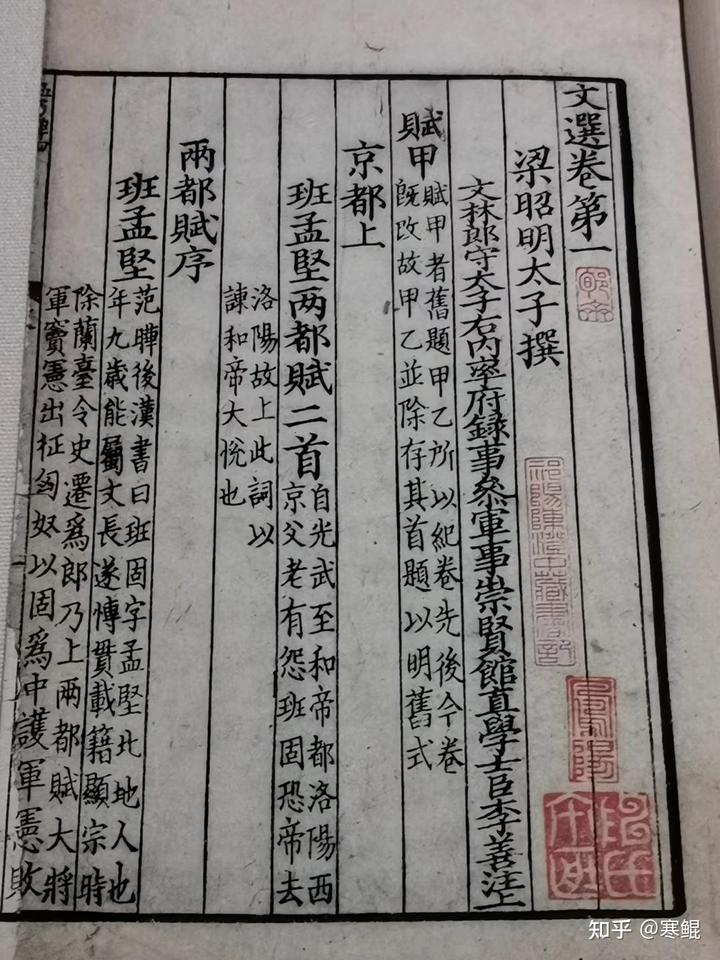 文選卷第一
郇齋
梁昭明太子撰
祁陽陳澄中藏書記
文林郎守太子右内率府録事叅軍事崇賢館直學士臣李善注上
賦甲
賦甲者舊題甲乙所以紀卷先後今卷
旣改故甲乙並除存其首題以明舊式
京都上
班孟堅兩都賦二首
自光武至和帝都洛陽西
京父老有怨班固恐帝去
洛陽故上此詞以
諫和帝大恱也
兩都賦序
班孟堅
范曄後漢書曰班固字孟堅北地人也
年九歳能屬文長遂博貫載籍顯宗時
除蘭臺令史遷爲郎乃上兩都賦大將
軍竇憲出征匈奴以固爲中護軍憲敗
知乎 @寒鲲